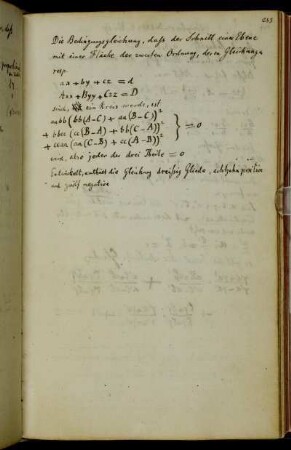 Die Bedingungsgleichung, daß der Schnitt einer Ebene
mit einer Fläche der zweiten Ordnung, deren Gleichungen
resp.
ax + by + cz = d
Axx + Byy + Czz = D
sind, ein Kreis werde, ist
aabb (bb(A-C) + aa(B-C))²
+ bbcc (cc(B-A) + bb(C-A))²
+ ccaa (aa(C-B) + cc(A-B))²
} = 0
und, also jeder der drei Theile = 0
Entwickelt, enthält die Gleichung dreißig Glieder, achtzehn positive
und zwölf negative